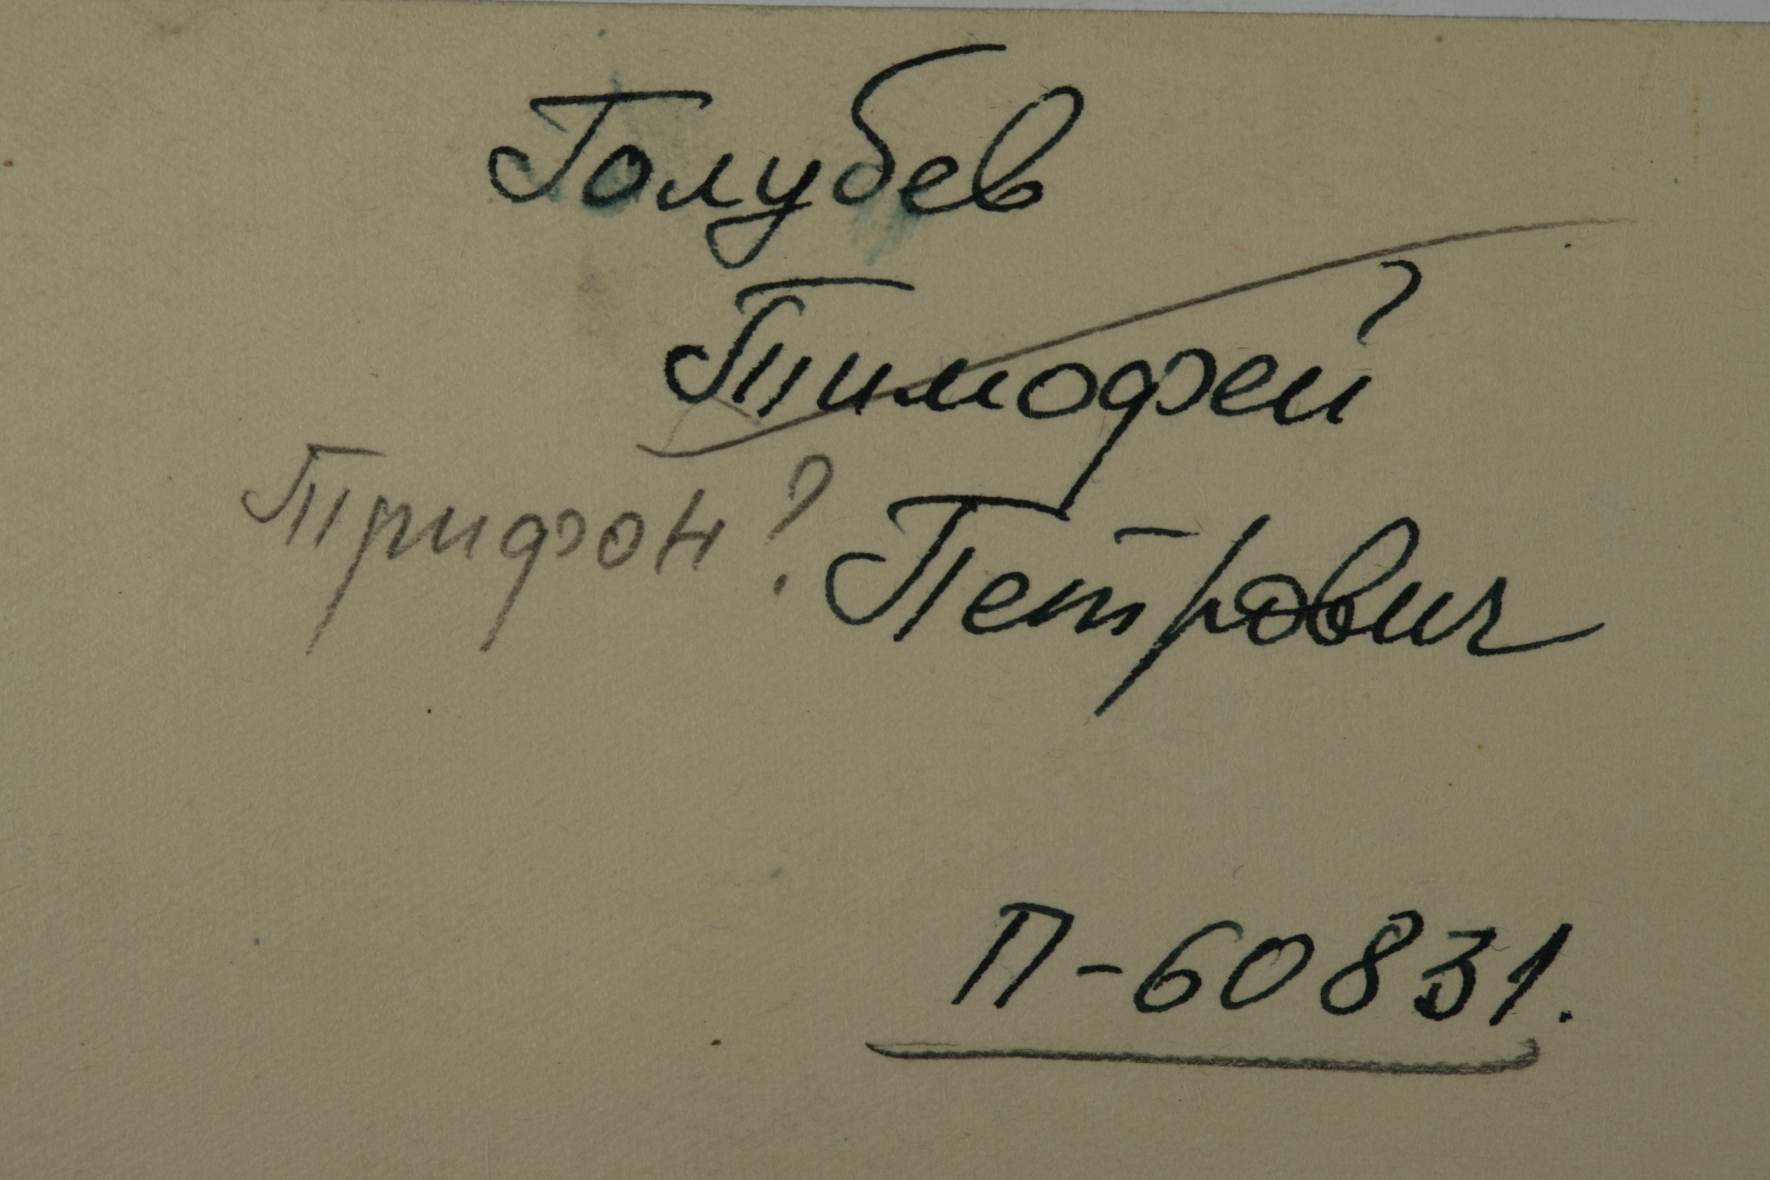 Голубев
Тимофей
Трифон?
Петрович
П-60831.